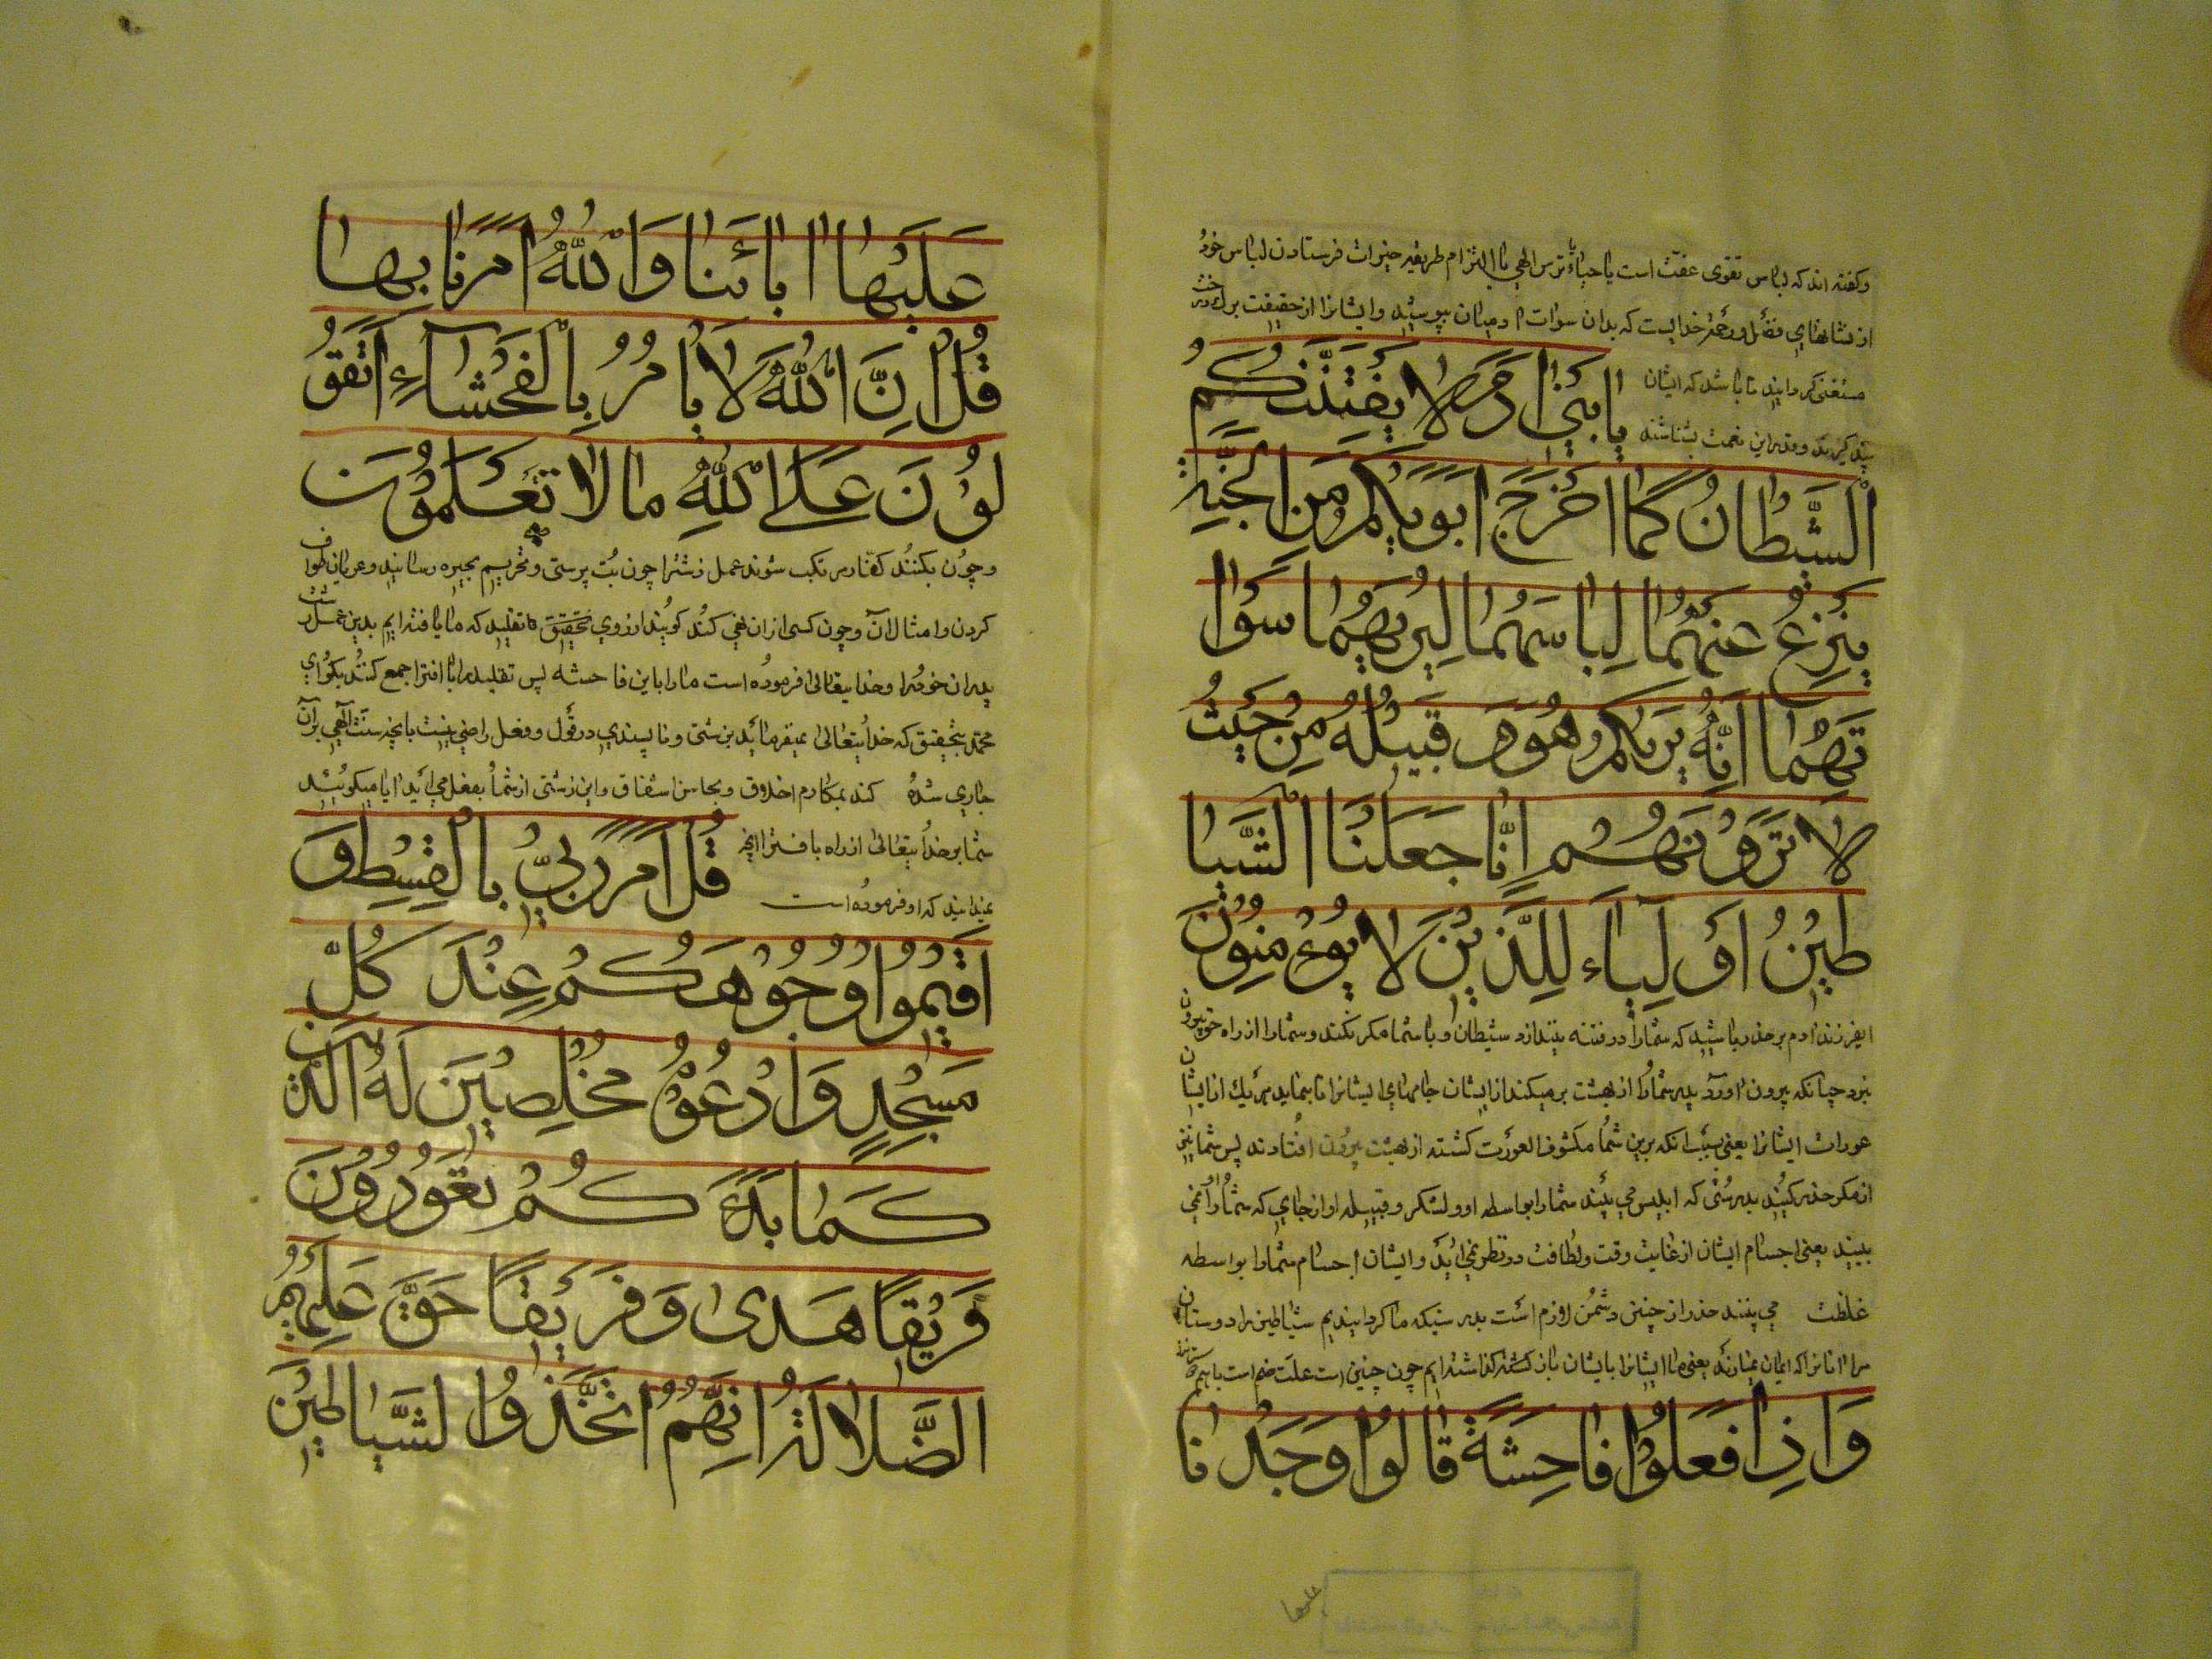 وکفته اند که لباس تقوی عفتست است یا حیاء یا ترس الهی یا التزام طریقه خیرات فرستادن لباس خود
از نشانهای فضل و رحمت خدایست که بدان سوات ادمیان بپوشید و ایشانرا از حقیقت برك درخت
مستغنی گردانید تا باشد که ایشان
یا بنی ادم لا یفتننکم
پند گیرند و قدر این نعمت بشناشند
الشیطان کما اخرج ابویکم من الجنة
ینزع عنهما لباسهما لیریهما سوا
تهما انه یریکم هو و قبیله من حیث
لا ترونهم انا جعلنا الشیا
طین اولیاء للذین لا یؤمنون
ایفرزندادم بر حذر باشید که شمارا در فتنه نیندازد شیطان و با شما مکر نکند و شمارا از راه خود بیرون
نبرد چنانکه بیرون اورد پدر شمارا از بهشت برمیکند از ایشان جامهای ایشانرا تا بنماید هر یك از ایشان
عورات ایشانرا یعنی سبب انکه برین شما مکشوف العورت کشته از بهشت بیرون افتادند پس شما نیز
از مکر حذر کنید بدرستی که ابلیس می بیند شمارا بواسطه او و لشکر و قبیله او از جای که شما اورا نمی
بینید یعنی اجسام ایشان از غایت وقت و لطافت در نظر نمی اید و ایشان اجسام شمارا بواسطه
غلظت می بینند حذر از چنین دشمن لازم است بدرستیکه ما گردانیدیم شیاطین را دوستان
مر انانرا که ایمان نمیارند یعنی ما ایشانرا بایشان باز کشته گذاشته ایم چون چنین است علت ضم است با هم
واذا فعلوا فاحشة قالوا وجدنا
علیها
علیها اباءنا والله امرنا بها
قل ان الله لا یامر بالفحشاء اتقو
لون علی الله ما لا تعلمون
و چون بکنند کفار مرتکب شوند عمل زشترا چون بت پرستی و تحریم بحیره و سائبه و عریان طواف
کردن و امثال ان و چون کسی از ان نهی کند گویند از روی تحقیق تا تقلید که ما یافته ایم بدین عمل زشت
پدران خود را و خدایتعالی فرموده است مارا باین فاحشه پس تقلید را با افترا جمع کنند بگو ای
محمد بتحقیق که خدایتعالی نمیفرماید بزشتی و ناپسندی در قول و فعل راضی نیست بانچه سنت الهی بر ان
جاری شده کند بمکارم اخلاق و محاسن اشفاق و این زشتی از شما بفعل می اید ایا میگویید
شما بر خدایتعالی از راه بافترا انچه
قل امر ربی بالقسط و
نمیدانید که او فرموده است
اقیموا وجوهکم عند کل
مسجد وادعوه مخلصین له الدین
کما بدءکم تعودون
فریقا هدی و فریقا حق علیهم
الضلالة انهم اتخذوا الشیاطین